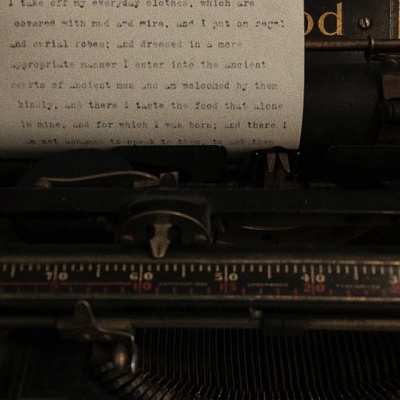 I take off my everyday clothes, which are
covered with mud and mire, and I put on regal
and curial robes; and dressed in a more
appropriate manner I enter into the ancient
courts of ancient men and am welcomed by them
kindly, and there I taste the food that alone
is mine, and for which I was born; and there I
am not ashamed to speak to them, to ask them
od
70 60 50 40